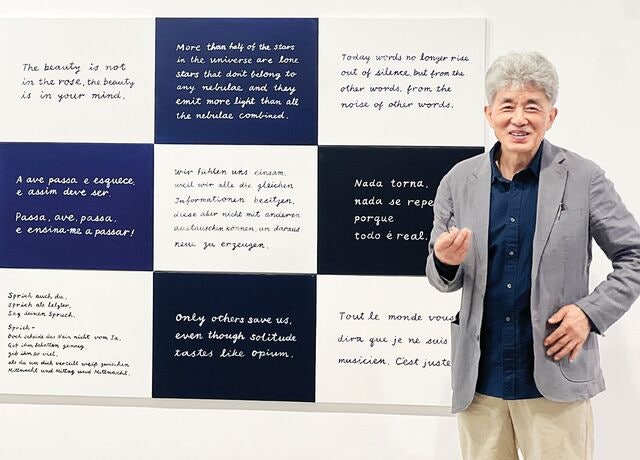 The beauty is not
in the rose, the beauty
is in your mind.
More than half of the stars
in the universe are lone
stars that don't belong to
any nebulae and they
emit more light than all
the nebulae combined.
Today words no longer rise
out of silence, but from the
other words, from the
noise of other words.
A ave passa e esquece,
e assim deve ser.
Passa, ave, passa,
e ensina-me a passar!
Wir fühlen uns einsam,
weil wir alle die gleichen
Informationen besitzen,
diese aber nicht mit anderen
austauschen können, um daraus
neue zu erzeugen.
Nada torna,
nada se repe
porque
todo é real.
Sprich auch du,
sprich als letzter,
Sag deinen Spruch.
Sprich -
Doch scheide das Nein nicht vom Ja.
Gib ihm Schatten genug,
gib ihm so viel,
als du um dich verteilt weißt zwischen
Mittnacht und Mittag und Mittnacht.
Only others save us,
even though solitude
tastes like opium.
Tout le monde vous
dira que je ne suis
musicien. C'est juste